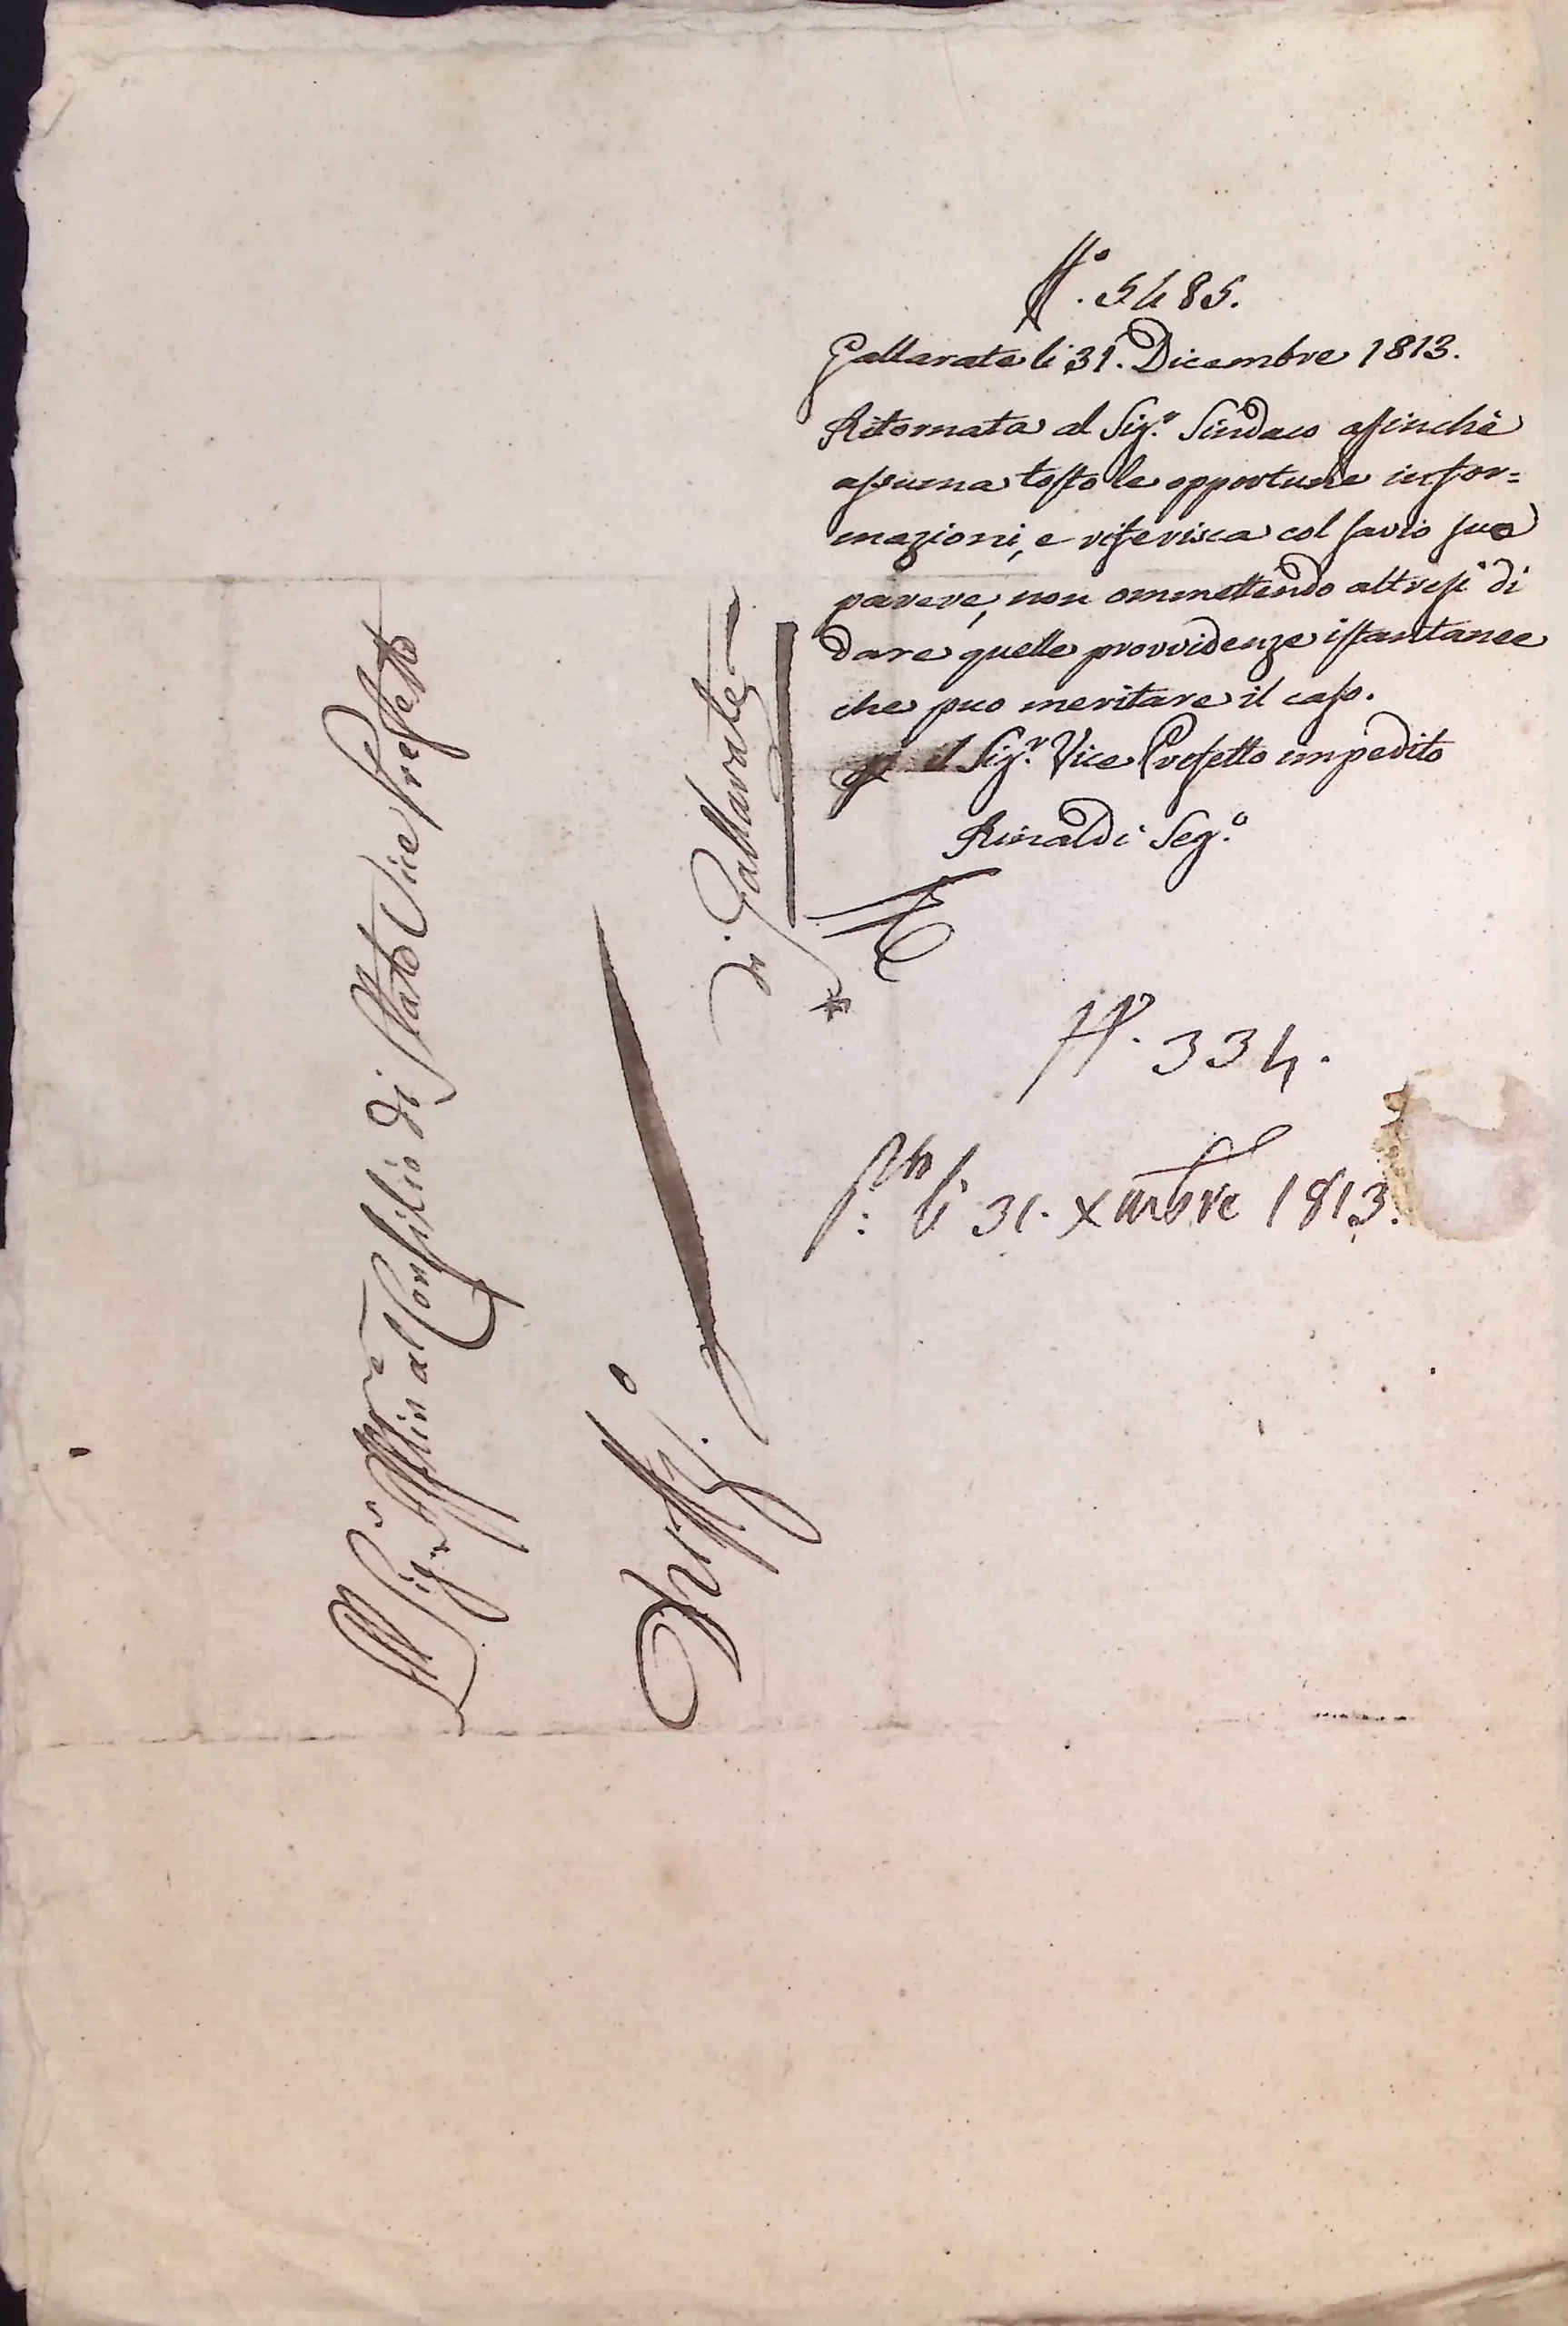 N.° 5485.
Gallarate li 31. Dicembre 1813.
Ritornata al Sig.r Sindaco affinchè
assuma tosto le opportune infor=
mazioni, e riferisca col savio suo
parere, non ommettendo altresì di
dare quelle provvidenze istantanee
che puo meritare il caso.
il Sig.r Vice Prefetto impedito
Rinaldi Seg.o
N.° 334.
li 31. Xmbre 1813.
Al Sig.r al Consilio di Stato Vice Prefetto
di Gallarate